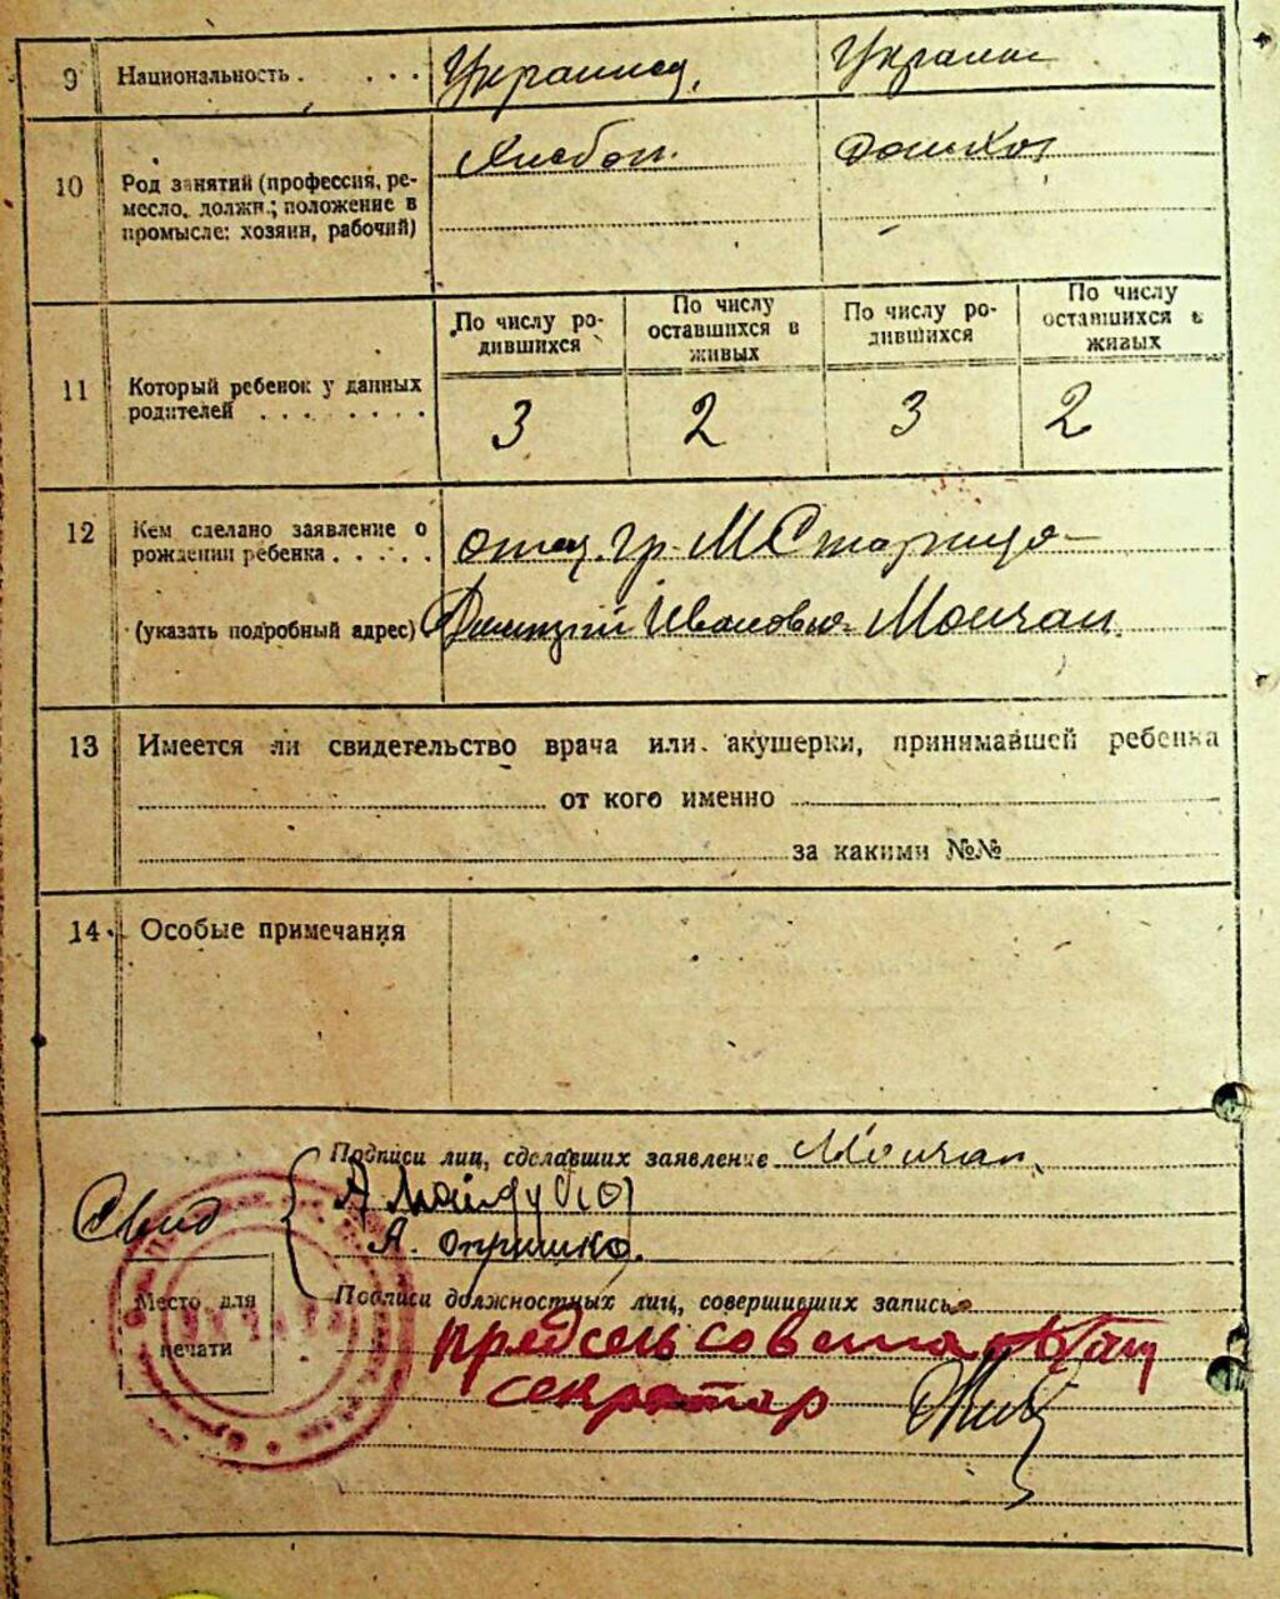 9 Национальность . . . . Украинец. Украин
10 Род занятий (профессия, ре-
месло, должн.; положение в
промысле: хозяин, рабочий)
Хлебоп. Домхоз
11 Который ребенок у данных
родителей . . . . . . . .
По числу ро-
дившихся
По числу
оставшихся в
живых
По числу ро-
дившихся
По числу
оставшихся в
живых
3 2 3 2
12 Кем сделано заявление о
рождении ребенка . . . . .
(указать подробный адрес)
отец. гр. М Старица
Дмитрий Иванович Молчан.
13 Имеется ли свидетельство врача или акушерки, принимавшей ребенка
от кого именно
за какими №№
14 Особые примечания
Подписи лиц, сделавших заявление Молчан.
Свид
А.
Я. Опришко.
Место для
печати
Подписи должностных лиц, совершивших запись
предсельсовета
секретар